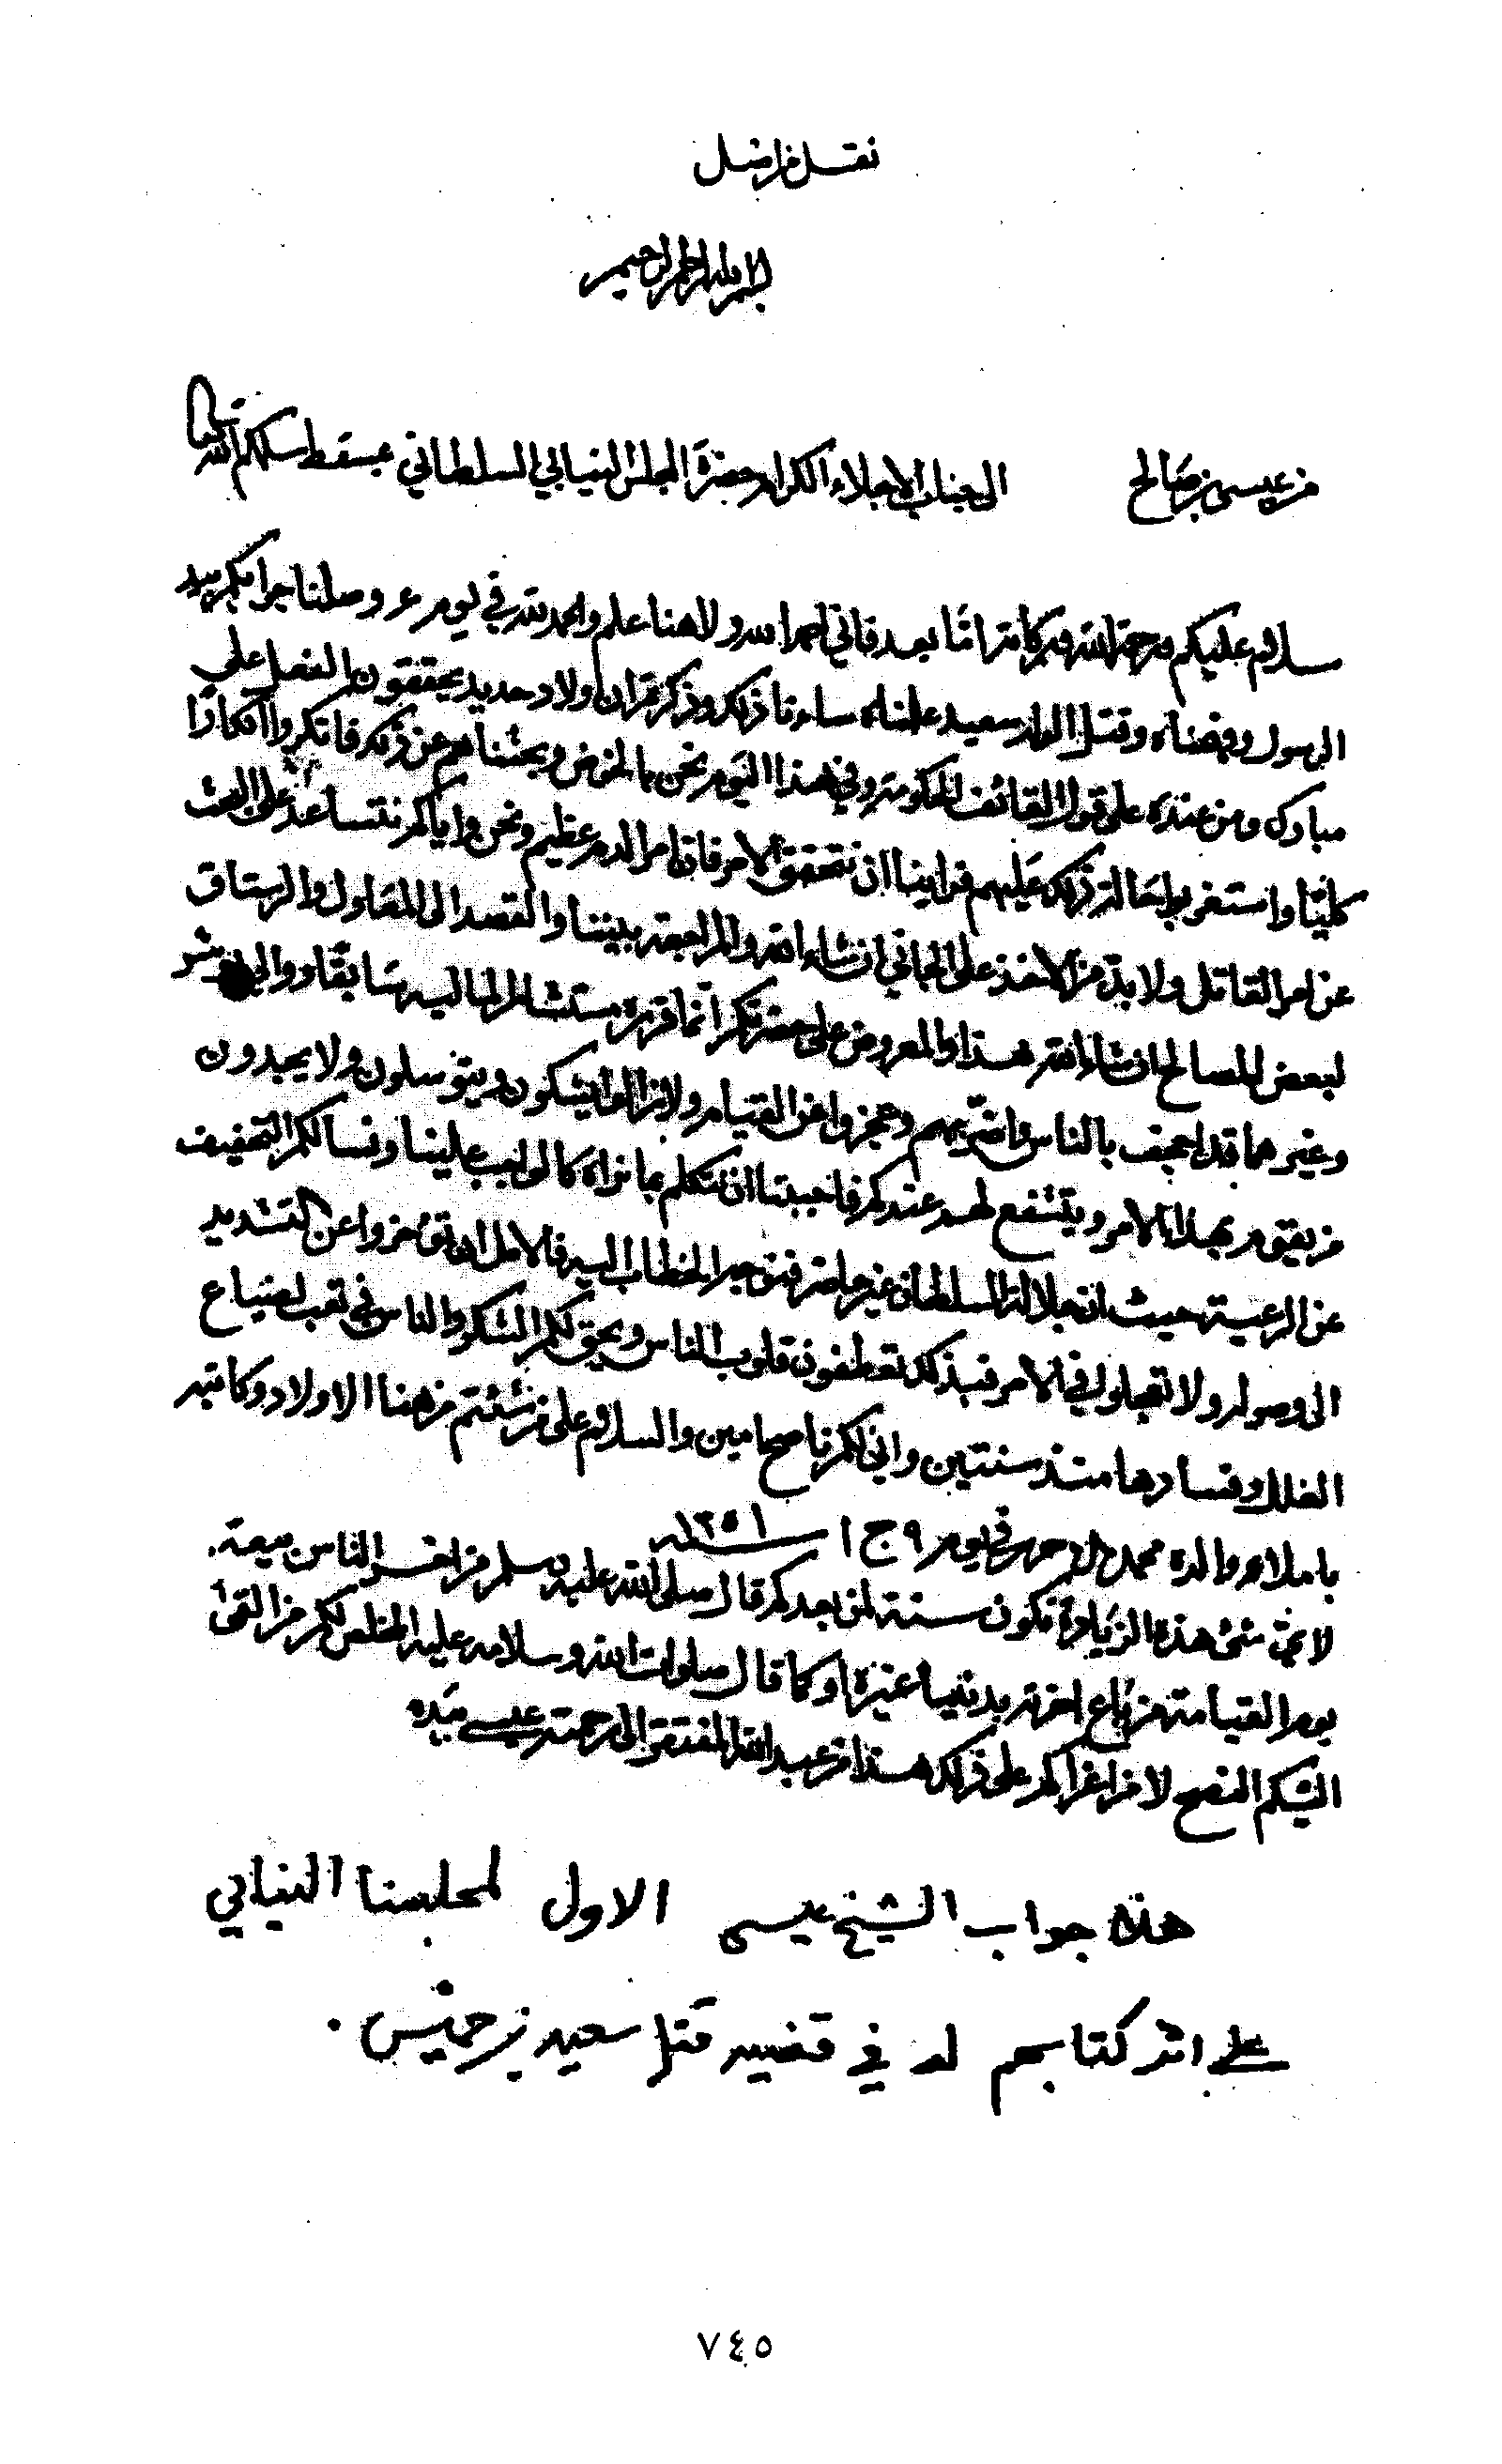 نقل من اصل
بسم الله الرحمن الرحيم
من عيسى بن صالح الى جناب الاجلاء الكرام حضرة المجلس النيابي السلطاني بمسقط سلمهم الله تعالى
سلام عليكم ورحمة الله وبركاته اما بعد فاني احمد الله ولا هنا علم والحمد لله في يوم وصلنا جوابكم بيد
الرسول وفهمناه وقتل الولد سعيد علمناه ساءنا ذلك وذكرتم ان اولاد حديد يحققون الفعل على
مبارك ومن عنده على قول القائف الحكومة وفي هذا اليوم نحن بالمضي وبحثناهم عن ذلك فانكروا انكارا
كليا واستغربوا احالة ذلك عليهم فراينا ان نتحقق الامر فان امر الدم عظيم ونحن واياكم نتساعد على البحث
عن امر القاتل ولا بد من الاخذ على الجاني ان شاء الله والمراجعة بيننا والقصد الى المقاول والرستاق
لبعض المصالح ان شاء الله هذا والمعروض على حضرتكم انما قرره مستشار المالية سابقا
وغيرهما قد اجحف بالناس واضر بهم وعجزوا عن القيام ولا زالوا يشكون ويتوسلون ولا يجدون
من يقوم بهذا الامر ويتشفع لهم عندكم فاحببنا ان نتكلم بما نراه كالواجب علينا ونسالكم التخفيف
عن الرعية حيث ان جلالة السلطان غير حاضر فنوجه الخطاب اليه فالامل عن التشديد
الى وصوله ولا تعجلوا في الامر فبذلك تعطفون قلوب الناس ويحق لكم الشكر والناس في تعب لضياع
الغلل وفسادها منذ سنتين واني لكم ناصح امين والسلام على من شئتم من هنا الاولاد وكاتبه
باملاء والده محمد في يوم ٩ ج ١ سنة ١٣٥١
هذه الزيادة تكون سنة لمن بعدكم قال صلى الله عليه وسلم من اخسر الناس صفقة
يوم القيامة من باع اخرته بدنيا غيره او كما قال صلوات الله وسلامه عليه المخلص لكم من القى
اليكم النصح لا من اغراكم على ذلك هذا من عبد الله المفتقر الى رحمته عيسى بيده
هذه جواب الشيخ عيسى الاول لمجلسنا النيابي
على اثر كتابهم له في قضيه قتل سعيد بن خميس .
٧٤٥